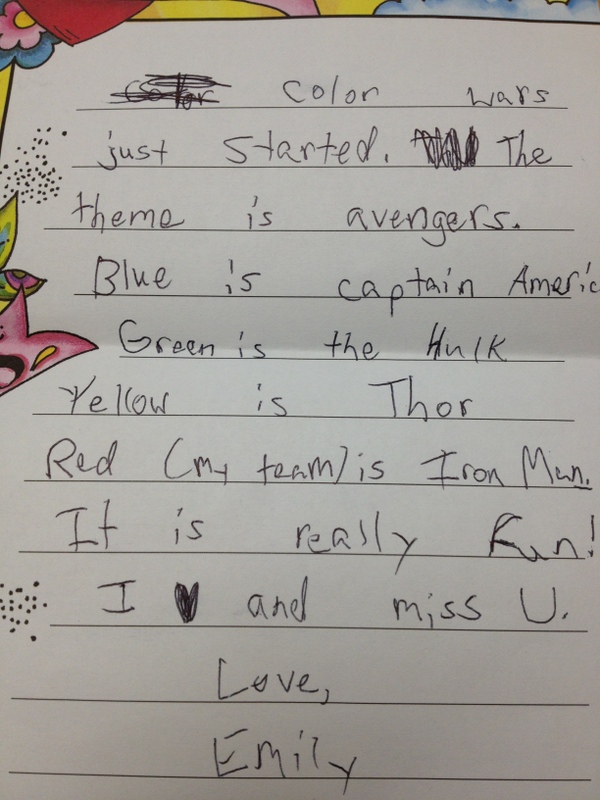 color wars
just started. The
theme is avengers.
Blue is captain Americ
Green is the Hulk
Yellow is Thor
Red (my team) is Iron Man.
It is really Fun!
I ♥ and miss U.
Love,
Emily